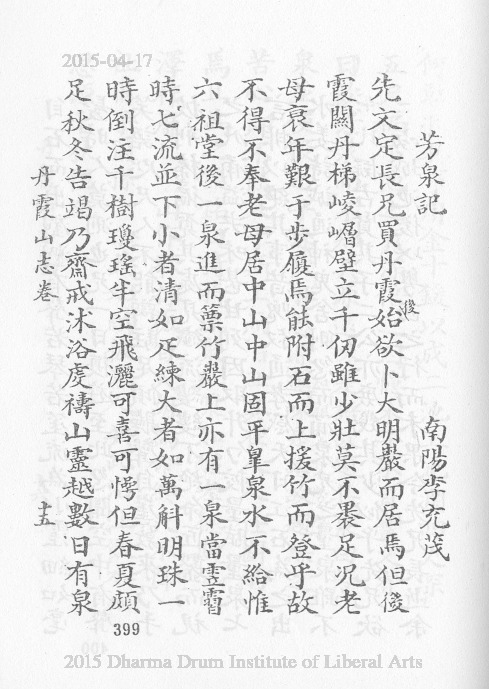 2015-04-17
芳泉記
南陽李充茂
先文定長兄買丹霞始欲卜大明巖而居焉但後
後
霞關丹梯崚嶒壁立千仞雖少壯莫不褁足況老
母衰年艱于步履焉能附石而上援竹而登乎故
不得不奉老母居中山中山固平皐泉水不給惟
六祖堂後一泉進而藥竹巖上亦有一泉當雲霤
時七流並下小者清如疋練大者如萬斛明珠一
時倒注千樹瓊瑤半空飛灑可喜可愕但春夏頗
足秋冬告竭乃齋戒沐浴虔禱山靈越數日有泉
丹霞山志卷
十五
399
2015 Dharma Drum Institute of Liberal Arts